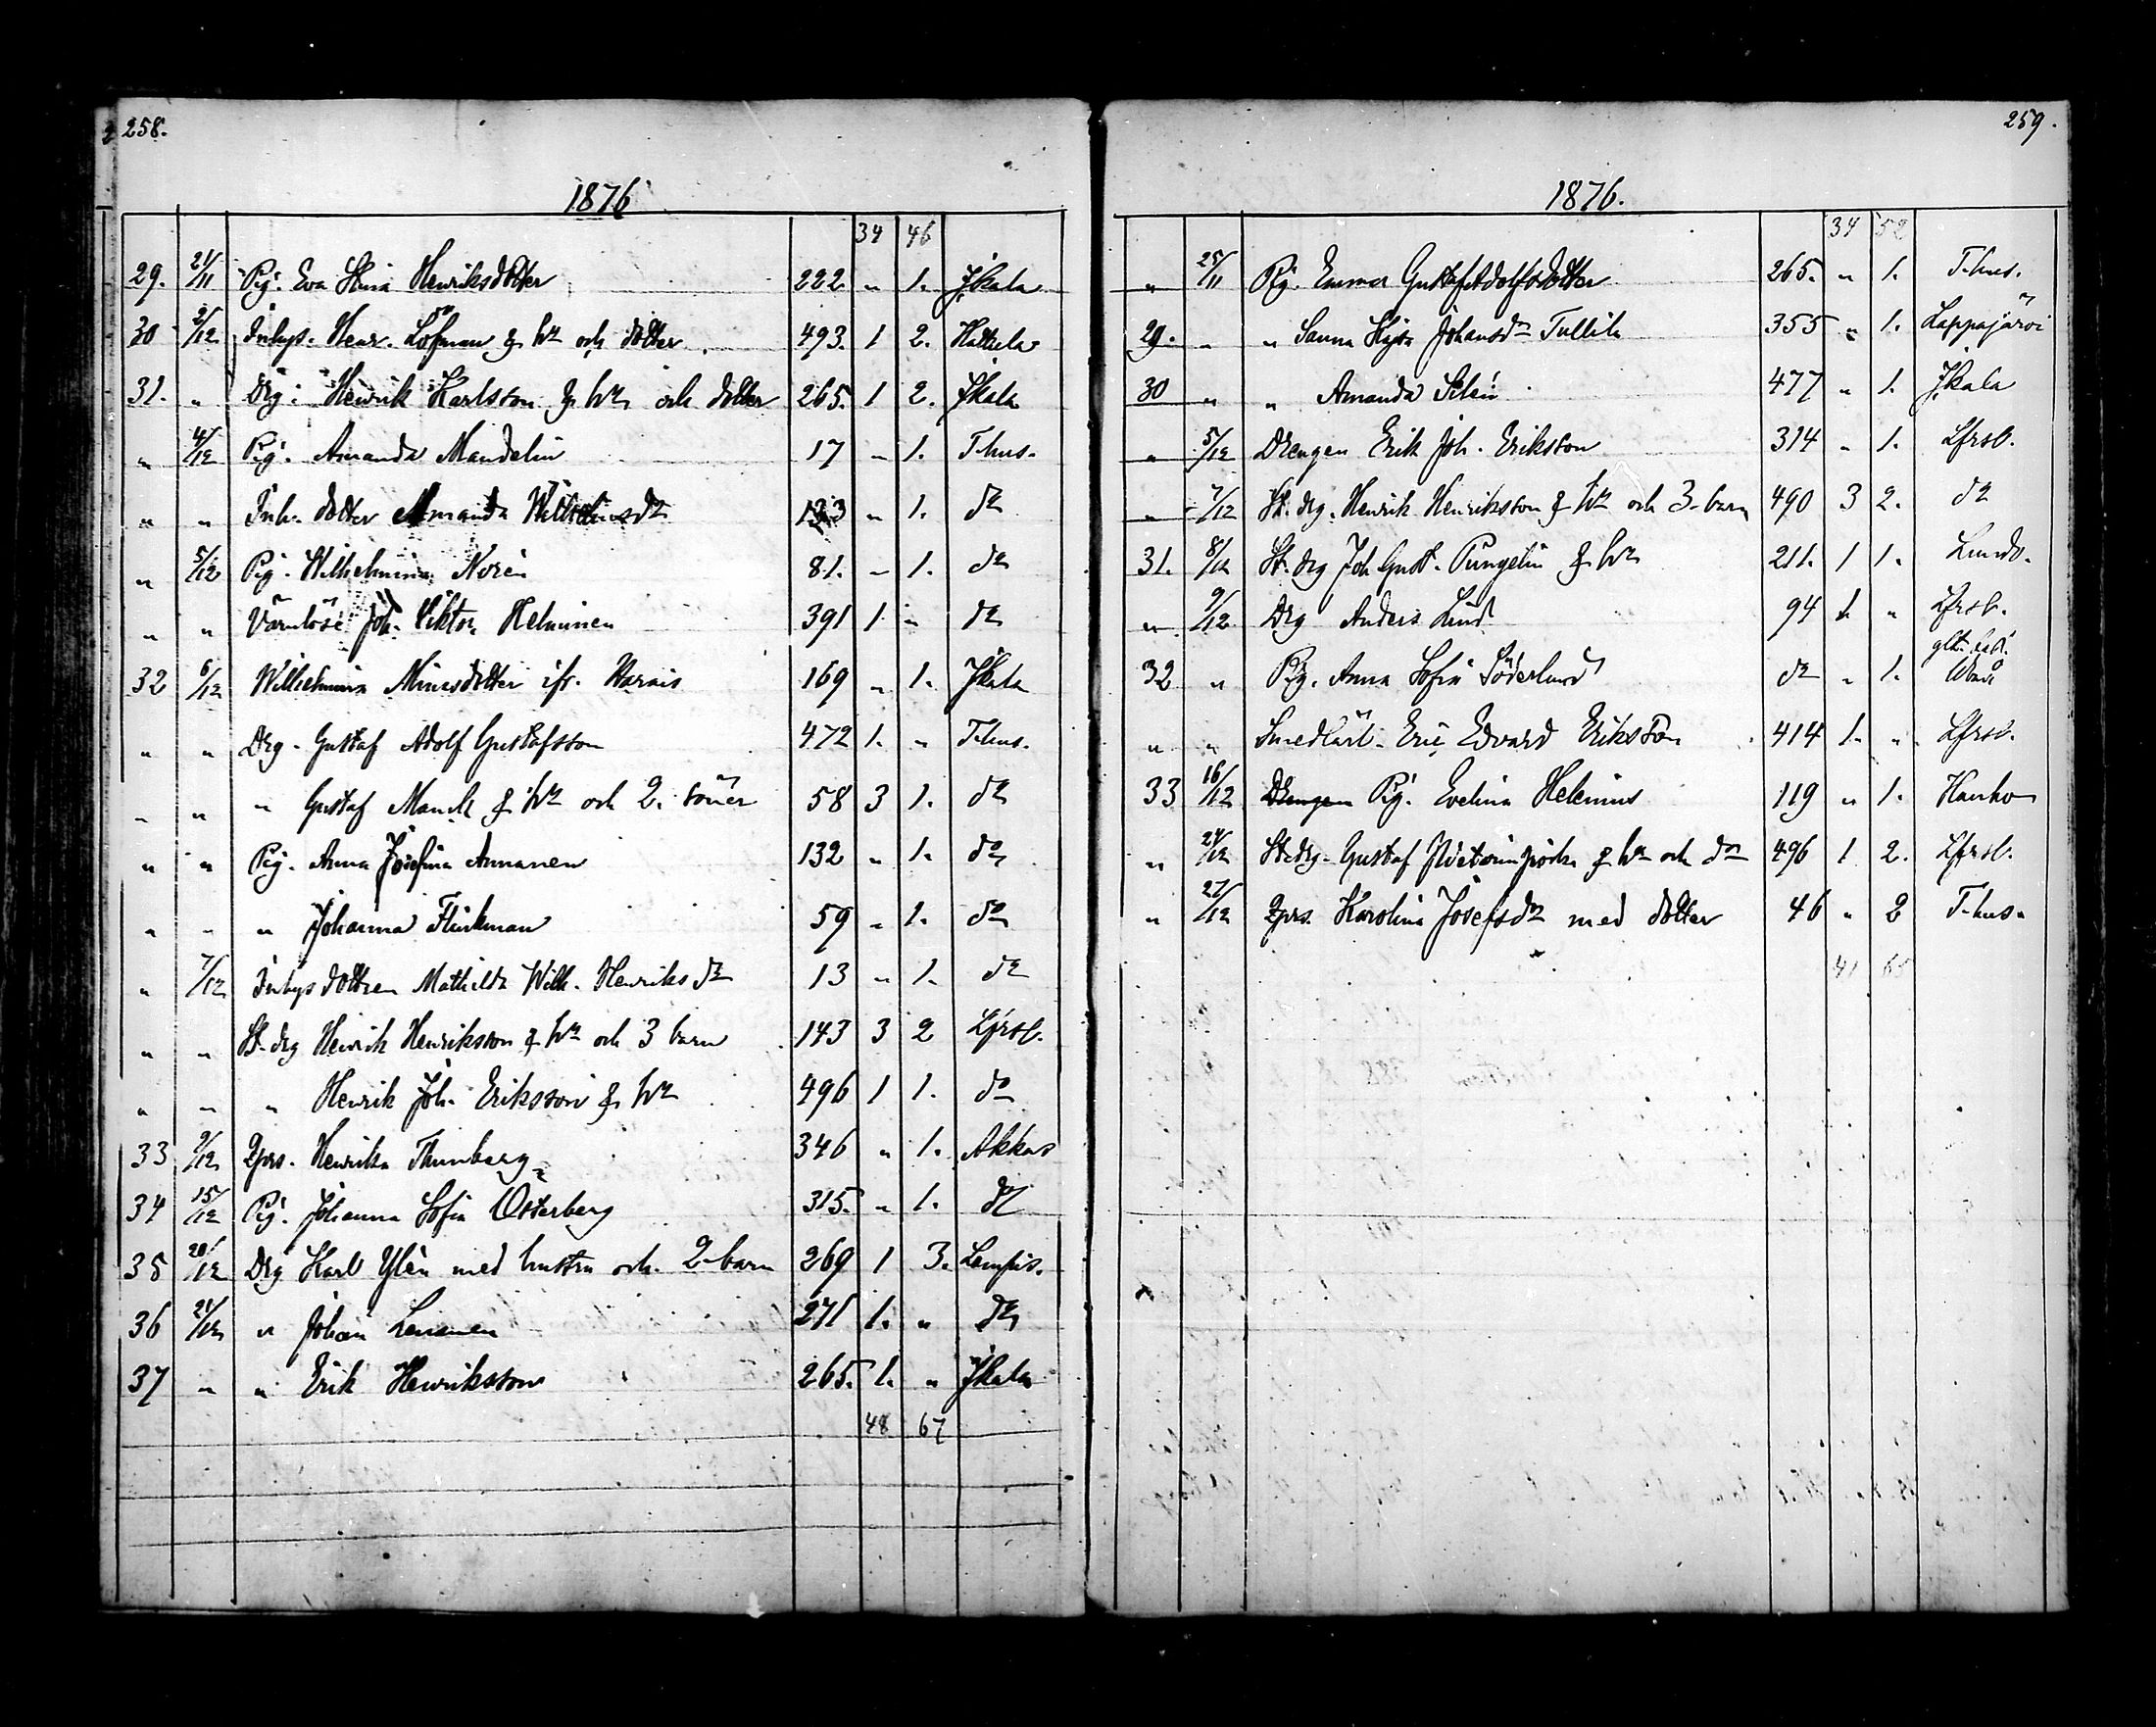 258.
1876
34 46
29. 21/11 Pig. Eva Stina Henriksdotter 222 " 1. Jkala
30 2/12 Inhys. Henr. Löfman & hu och dotter 493. 1 2. Hattula
31. " Drg. Henrik Karlsson & hu och dotter 265. 1 2. Jkala
" 4/12 Pig. Amanda Mandelin 17 " 1. T-hus.
" " Inh. dotter Amanda Wilhelmsdr 133 " 1. do
" 5/12 Pig. Wilhelmina Norén 81. " 1. do
" " Värnlöse Joh. Viktor Helminen 391 1 " do
32 6/12 Wilhelmina Minasdotter ifr. 169 " 1. Jkala
" " Drg. Gustaf Adolf Gustafsson 472 1. " T-hus.
" " " Gustaf Manck & hu och 2. söner 58 3 1. do
" " Pig. Anna Josefina Annanen 132 " 1. do
" " " Johanna Flinkman 59 " 1. do
" 7/12 Inhysdottren Mathilda Wilh. Henriksdr 13 " 1. do
" " St. drg Henrik Henriksson & hu och 3 barn 143 3 2 Lfrsb.
" " " Henrik Joh. Eriksson & hu 496 1 1. do
33 9/12 Qprs. Henrika Thunberg 346 " 1. Akkas
34 15/12 Pig. Johanna Sofia Österberg 315. " 1. do
35 20/12 Drg Karl Ylén med hustru och 2 barn 269 1 3. Lempis.
36 21/12 " Johan Lenanen 271 1. " do
37 " " Erik Henriksson 265. 1. " Jkala
48 67
259.
1876.
34 52
" 25/11 Pig. Emma GustafAdolfsdotter 265. " 1. T-hus.
29. " " Sanna Kajsa Johansdr Tullila 355 " 1. Lappajärvi
30 " " Amanda Selin 477 " 1. Jkala
" 5/12 Drengen Erik Joh. Eriksson 314 " 1. Lfrsb.
" 7/12 St. drg. Henrik Henriksson & hu och 3 barn 490 3 2. do
31. 8/12 St. drg Joh. Gust. Pungelin & hu 211. 1 1. Lundo.
" 9/12 Drg Anders Lind 94 1 " Lfrsb.
32 " Pig. Anna Sofia Söderlund do " 1. Åbo
" " Smedlärl. Eric Edvard Eriksson 414 1. " Lfrsb.
33 16/12 Drengen Pig. Evelina Helenius 119 " 1. Hauho
" 24/12 St. drg. Gustaf & hu och dr 496 1 2. Lfrsb.
" 27/12 Qprs. Karolina Josefsdr med dotter 46 " 2 T-hus.
41